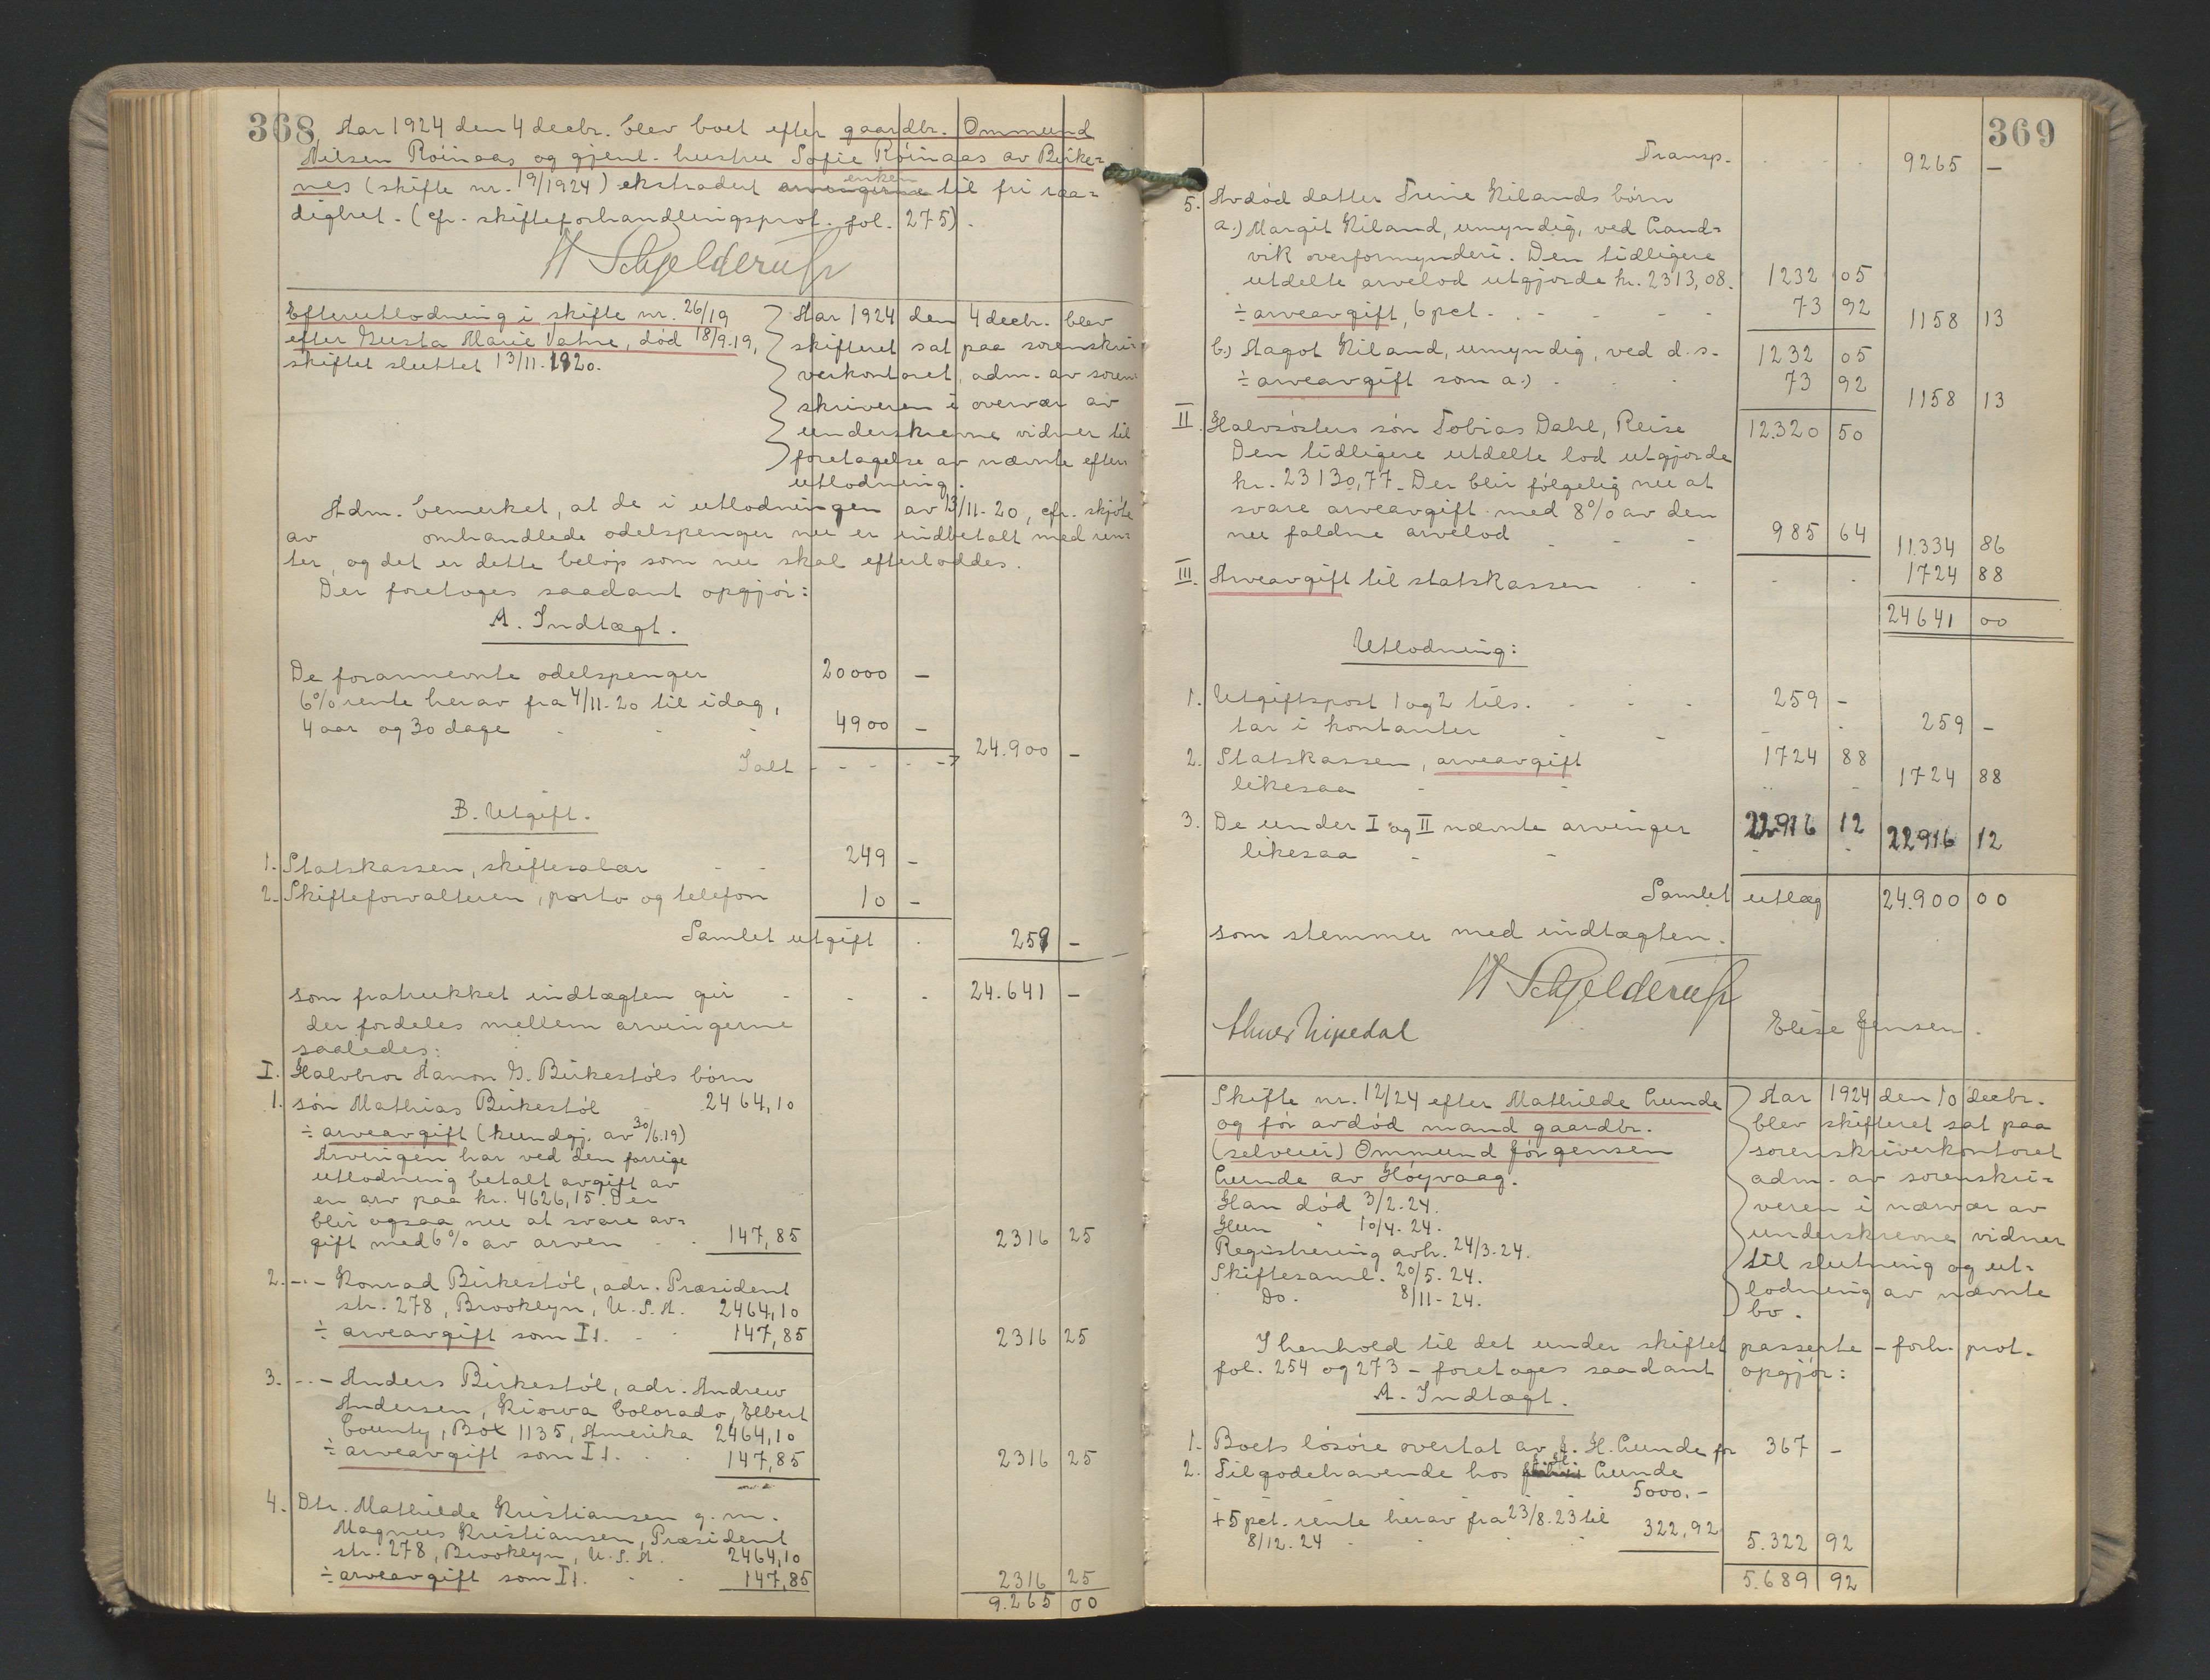 368
Aar 1924 den 4 decbr. blev boet efter gaardbr. Ommund
Nilsen Röinaas og gjenl. hustru Sofie Röinaas av Birke=
nes (skifte nr. 19/1924) ekstradert enken til fri raa=
dighet. (cfr. skifteforhandlingsprot. fol. 275).
H Schjelderup
Efterutlodning i skifte nr. 26/19
efter Gusta Marie Vatne, död 18/9.19,
skiftet sluttet 13/11. 1920.
Aar 1924 den 4 decbr. blev
skifteret sat paa sorenskri=
verkontoret, adm. av soren=
skriveren i overvær av
underskrevne vidner til
foretagelse av nævnte efter=
utlodning.
Adm. bemerket, at de i utlodningen av 13/11-20, cfr. skjöte
av omhandlede odelspenger nu er indbetalt med ren=
ter, og det er dette belöp som nu skal efterloddes.
Der foretoges saadant opgjör:
A. Indtægt.
De forannevnte odelspenger 20000 -
6% rente herav fra 4/11-20 til idag,
4 aar og 30 dage 4900 -
Ialt 24.900 -
B. Utgift.
1. Statskassen, skiftesalær 249 -
2. Skifteforvalteren, porto og telefon 10 -
Samlet utgift 259 -
som fratrukket indtægten gir 24.641 -
der fordeles mellem arvingerne
saaledes:
I. Halvbror Aanon G. Birkestöls börn
1. sön Mathias Birkestöl 2464,10
÷ arveavgift (kundgj. av 30/6.19)
Arvingen har ved den forrige
utlodning betalt avgift av
en arv paa kr. 4626,15. Der
blir ogsaa nu at svare av=
gift med 6% av arven 147,85 2316 25
2. -"- Konrad Birkestöl, adr. Præsident
str. 278, Brooklyn, U.S.A. 2464,10
÷ arveavgift som I 1. 147,85 2316 25
3. -"- Anders Birkestöl, adr. Andrew
Andersen, Kiowa Colorado, Elbert
County, Box 1135, Amerika 2464,10
÷ arveavgift som I 1. 147,85 2316 25
4. Dtr. Mathilde Kristiansen g. m.
Magnus Kristiansen, Præsident
str. 278, Brooklyn, U.S.A. 2464,10
÷ arveavgift som I 1. 147,85 2316 25
9.265 00
369
Transp. 9265 -
5. Avdöd datter Trine Kilands börn
a.) Margit Kiland, umyndig, ved Land=
vik overformynderi. Den tidligere
utdelte arvelod utgjorde kr. 2313,08. 1232 05
÷ arveavgift, 6 pct. 73 92 1158 13
b.) Aagot Kiland, umyndig, ved d.s. 1232 05
÷ arveavgift som a.) 73 92 1158 13
II. Halvsösters sön Tobias Dahl, Reise 12.320 50
Den tidligere utdelte lod utgjorde
kr. 23130,77. Der blir fölgelig nu at
svare arveavgift med 8% av den
nu faldne arvelod 985 64 11.334 86
III. Arveavgift til statskassen 1724 88
24641 00
Utlodning:
1. Utgiftspost 1 og 2 tils. 259 -
tar i kontanter 259 -
2. Statskassen, arveavgift 1724 88
likesaa 1724 88
3. De under I og II nævnte arvinger 22.916 12
likesaa 22.916 12
Samlet utlæg 24.900 00
som stemmer med indtægten.
H Schjelderup
Nipedal Elise Jensen.
Skifte nr. 12/24 efter Mathilde Lunde
og för avdöd mand gaardbr.
(selveier) Ommund Jörgensen
Lunde av Höyvaag.
Han död 3/2-24.
Hun " 10/4-24.
Registrering avh. 24/3-24.
Skiftesaml. 20/5-24.
Do. 8/11-24.
Aar 1924 den 10 decbr.
blev skifteret sat paa
sorenskriverkontoret
adm. av sorenskri=
veren i nærvær av
underskrevne vidner
til slutning og ut=
lodning av nævnte
bo.
I henhold til det under skiftet passerte - forh. prot.
fol. 254 og 273 - foretoges saadant opgjör:
A. Indtægt.
1. Boets lösöre overtat av J. H. Lunde for 367 -
2. Tilgodehavende hos Lunde
5000.-
+5 pct. rente herav fra 23/8.23 til
8/12.24 322,92 5.322 92
5.689 92